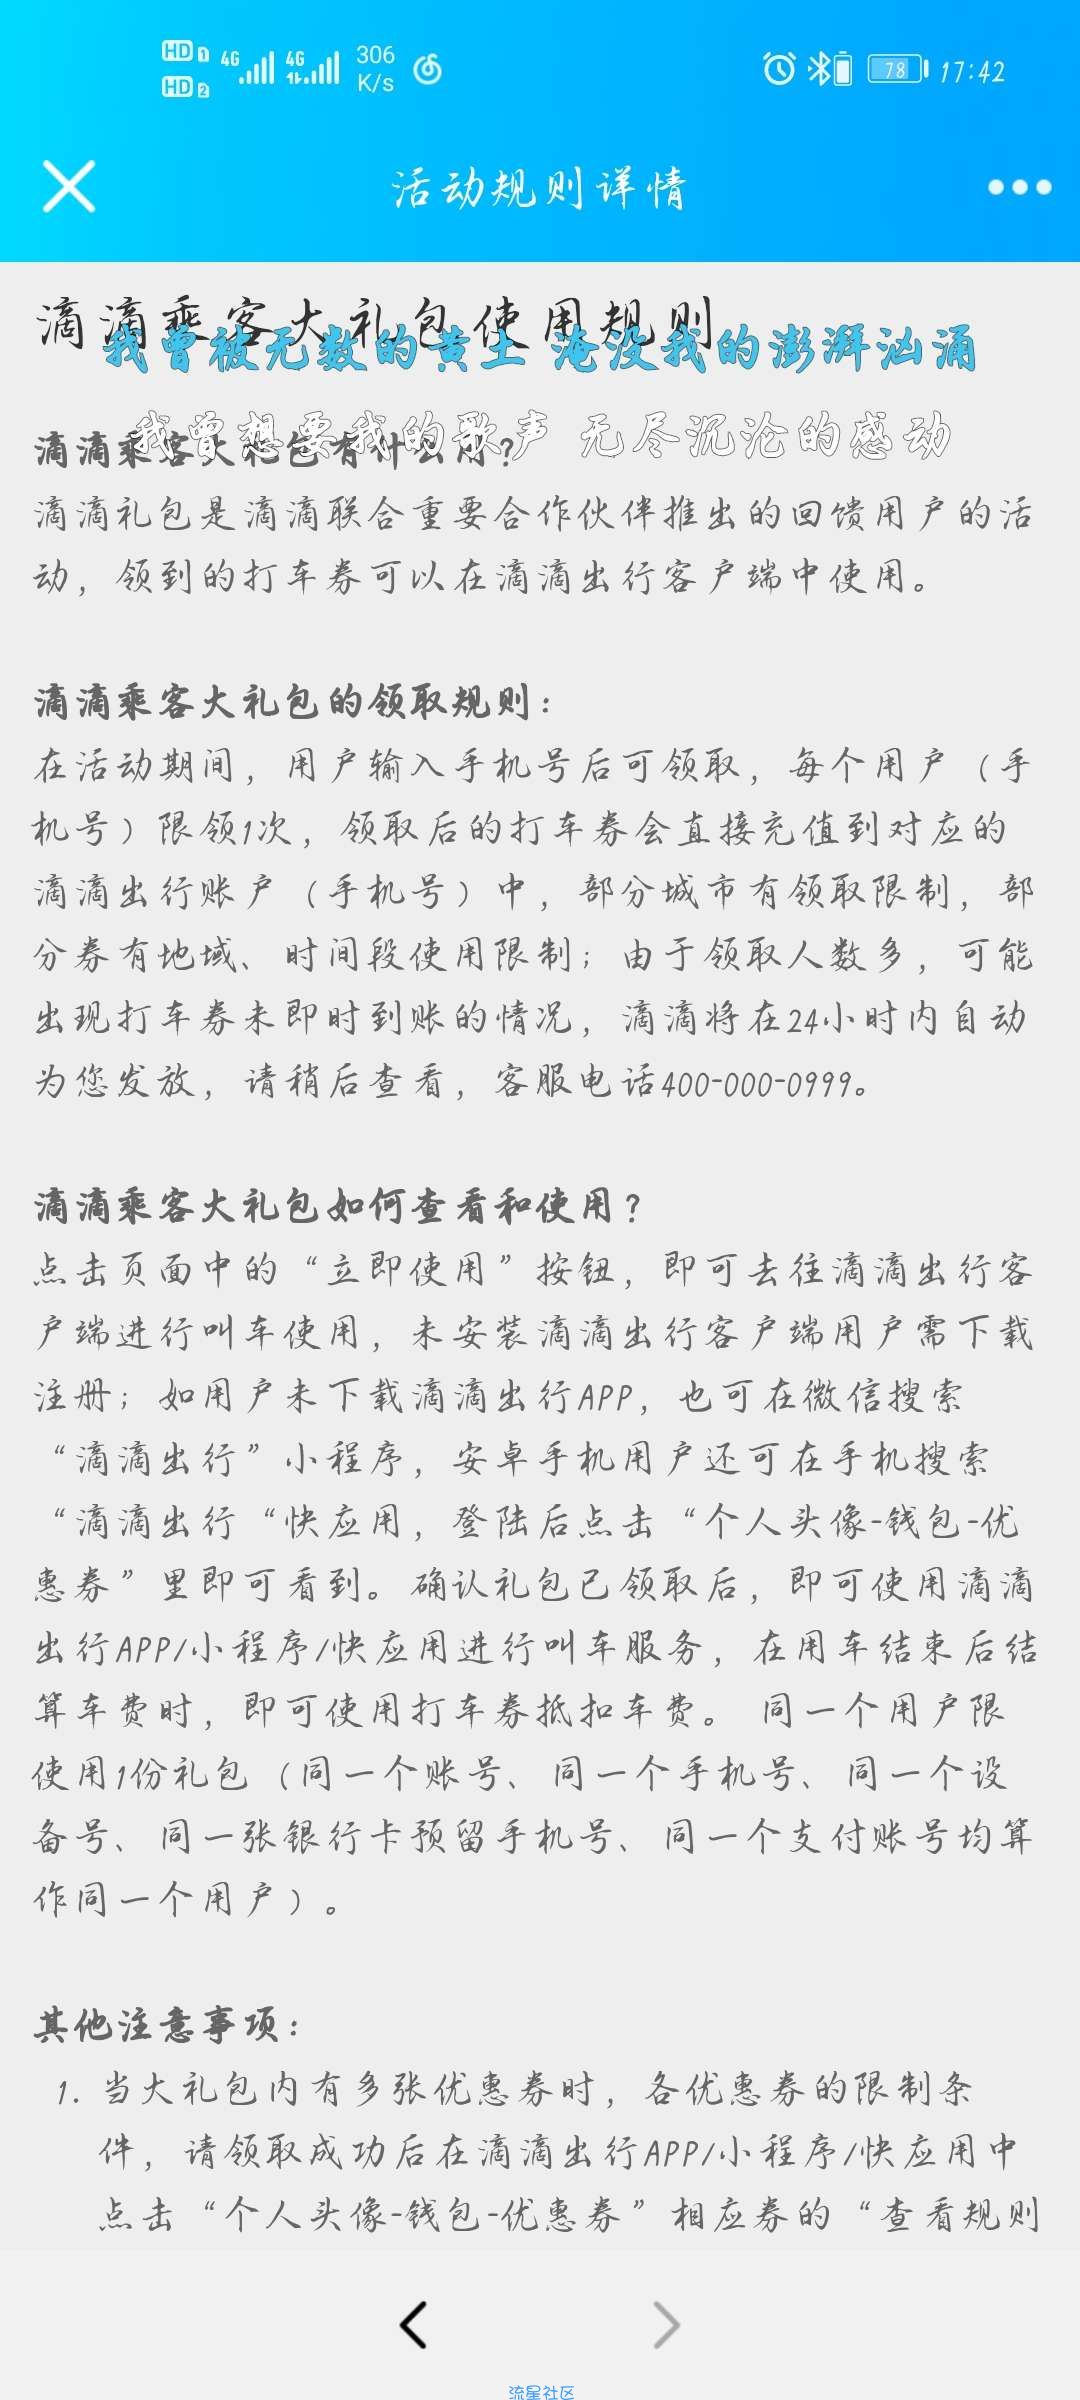 HD 1 4G 4G 306 K/s 78 17:42
HD 2
活动规则详情
滴滴乘客大礼包使用规则
我曾被无数的黄土 淹没我的澎湃汹涌
我曾想要我的歌声 无尽沉沦的感动
滴滴乘客大礼包有什么用？
滴滴礼包是滴滴联合重要合作伙伴推出的回馈用户的活
动，领到的打车券可以在滴滴出行客户端中使用。
滴滴乘客大礼包的领取规则：
在活动期间，用户输入手机号后可领取，每个用户（手
机号）限领1次，领取后的打车券会直接充值到对应的
滴滴出行账户（手机号）中，部分城市有领取限制，部
分券有地域、时间段使用限制；由于领取人数多，可能
出现打车券未即时到账的情况，滴滴将在24小时内自动
为您发放，请稍后查看，客服电话400-000-0999。
滴滴乘客大礼包如何查看和使用？
点击页面中的“立即使用”按钮，即可去往滴滴出行客
户端进行叫车使用，未安装滴滴出行客户端用户需下载
注册；如用户未下载滴滴出行APP，也可在微信搜索
“滴滴出行”小程序，安卓手机用户还可在手机搜索
“滴滴出行“快应用，登陆后点击“个人头像-钱包-优
惠券”里即可看到。确认礼包已领取后，即可使用滴滴
出行APP/小程序/快应用进行叫车服务，在用车结束后结
算车费时，即可使用打车券抵扣车费。 同一个用户限
使用1份礼包（同一个账号、同一个手机号、同一个设
备号、同一张银行卡预留手机号、同一个支付账号均算
作同一个用户）。
其他注意事项：
1. 当大礼包内有多张优惠券时，各优惠券的限制条
件，请领取成功后在滴滴出行APP/小程序/快应用中
点击“个人头像-钱包-优惠券”相应券的“查看规则
流星社区